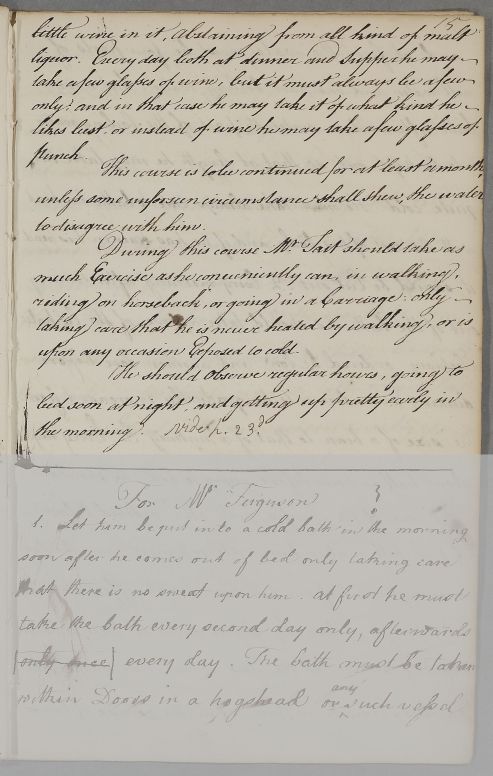 15.
little wine in it, abstaining from all kind of malt
liquor. Every day both at dinner and supper he may
take a few glasses of wine, but it must always be a few
only: and in that case he may take it of what kind he
likes best. or instead of wine he may take a few glasses of
Punch
This course is to be continued for at least a month,
unless some unforseen circumstance shall shew, the water
to disagree with him.
During this course Mr. Tait should take as
much Exercise as he conveniently can, in walking,
riding on horseback, or going in a Carriage. only
taking care that he is never heated by walking, or is
upon any occasion Exposed to cold.
He should observe regular hours, going to
bed soon at night, and getting up pretty early in
the morning. Vide p. 23d
For Mr Ferguson
1. Let him be put into a cold bath in the morning
soon after he comes out of bed only taking care
that there is no sweat upon him. at first he must
take the bath every second day only, afterwards
only once every day. The bath must be taken
within Doors in a hogshead or any such vessel